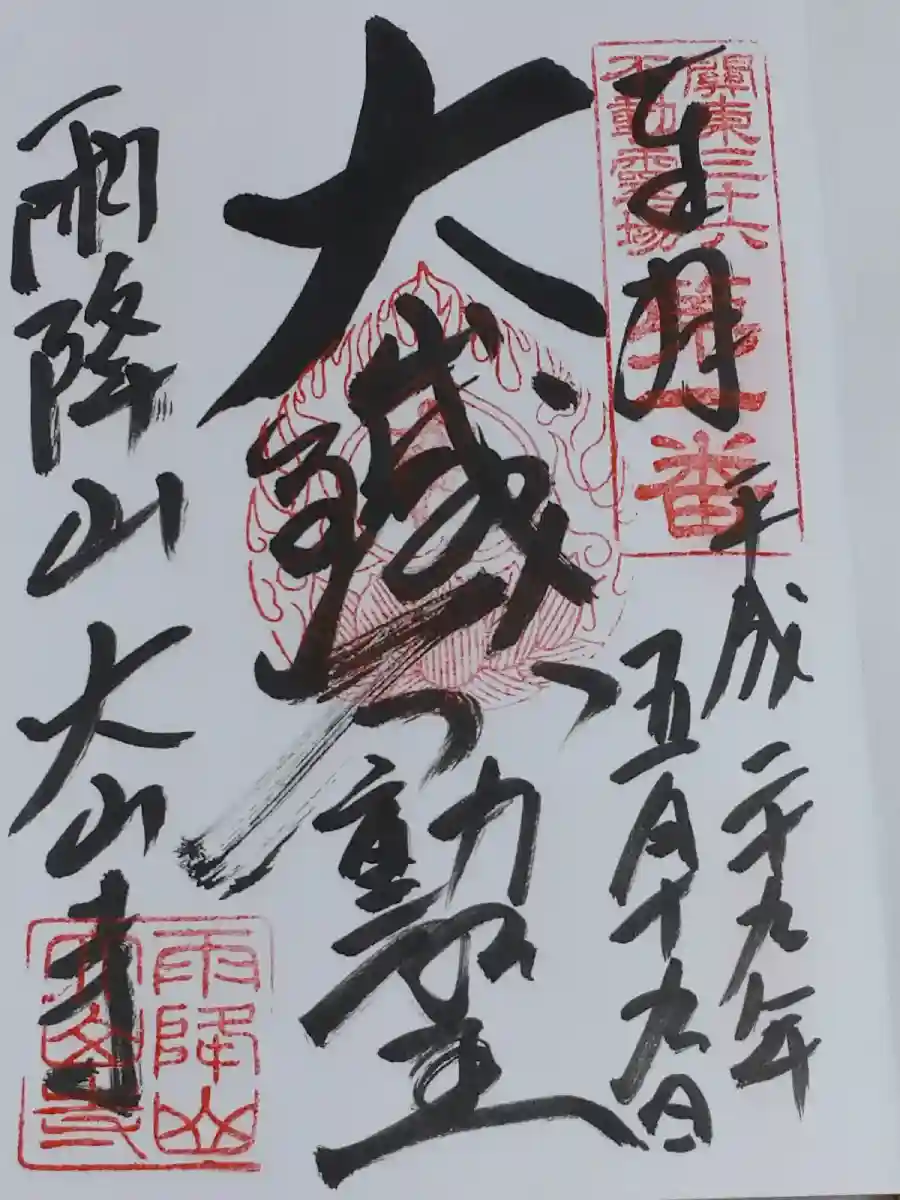 奉拝
關東三十六
不動靈場
第一番
平成二十九年
五月十九日
大鐵不動明王
雨降山大山寺
雨降山
大山寺